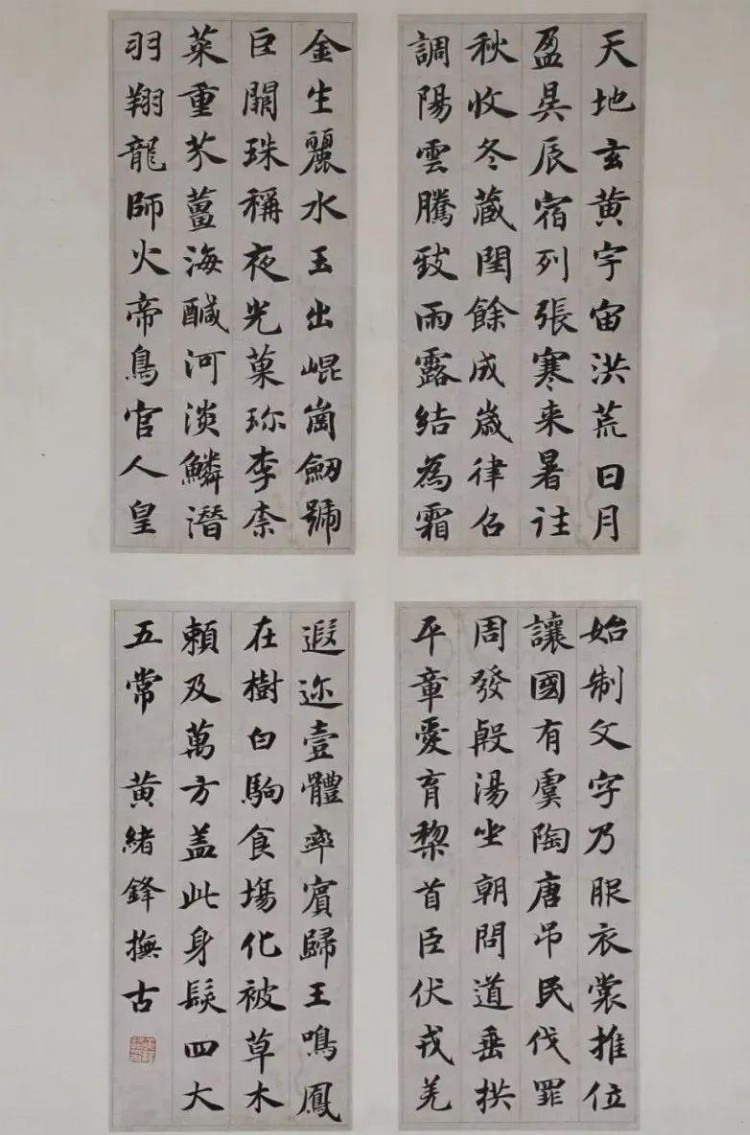 天地玄黄宇宙洪荒日月
盈昃辰宿列張寒来暑往
秋收冬蔵閏餘成歲律召
調陽雲騰致雨露結為霜
金生麗水玉出崐崗劒號
巨闕珠稱夜光菓珎李柰
菜重芥薑海醎河淡鱗潜
羽翔龍師火帝鳥官人皇
始制文字乃服衣裳推位
讓國有虞陶唐吊民伐罪
周發殷湯坐朝問道垂拱
平章愛育黎首臣伏戎羌
遐迩壹體率賓歸王鳴鳳
在樹白駒食塲化被草木
頼及萬方盖此身髮四大
五常 黄緒鋒撫古